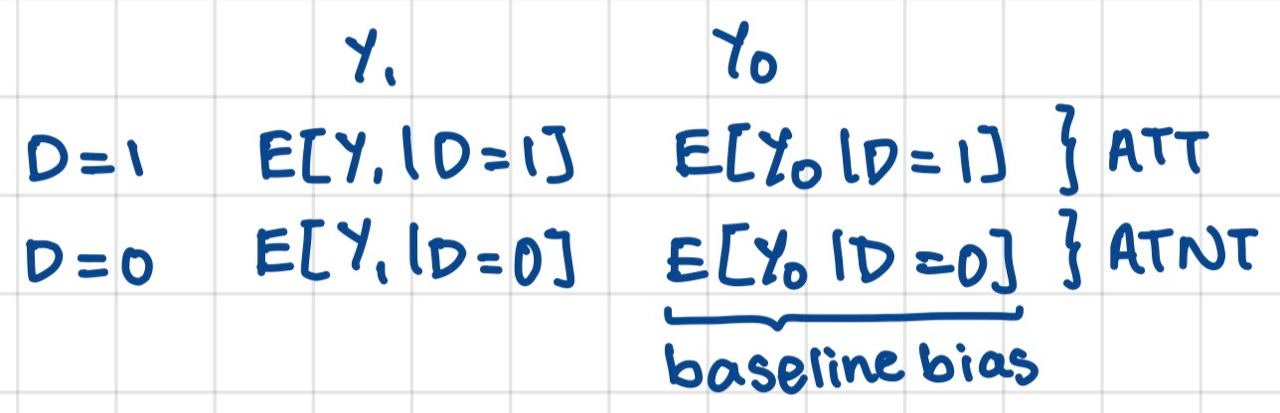 Y₁ Y₀
D=1 E[Y₁|D=1] E[Y₀|D=1] } ATT
D=0 E[Y₁|D=0] E[Y₀|D=0] } ATNT
baseline bias